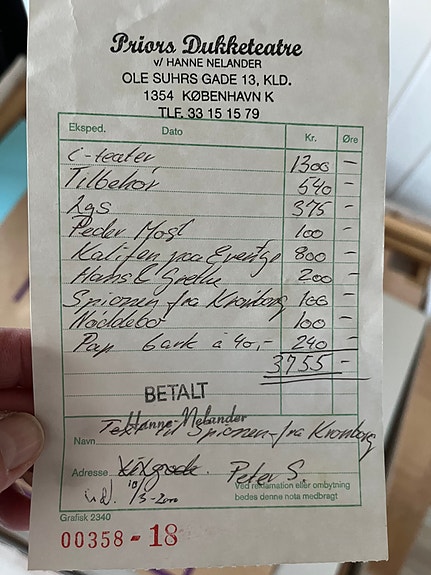 Priors Dukketeatre
v/ HANNE NELANDER
OLE SUHRS GADE 13, KLD.
1354 KØBENHAVN K
TLF. 33 15 15 79
Eksped. Dato Kr. Øre
i-teater 1300 -
Tilbehør 540 -
Lys 375 -
Peder Most 100 -
Kalifen paa Eventyr 800 -
Hans & Grethe 200 -
Spionen fra Kronborg 100 -
Nøddebo 100 -
Pap 6 ark à 40,- 240 -
3755 -
BETALT
Hanne Nelander
Navn Tekst til Spionen fra Kronborg
Adresse Peter S.
Ved reklamation eller ombytning
bedes denne nota medbragt
Grafisk 2340
00358 - 18